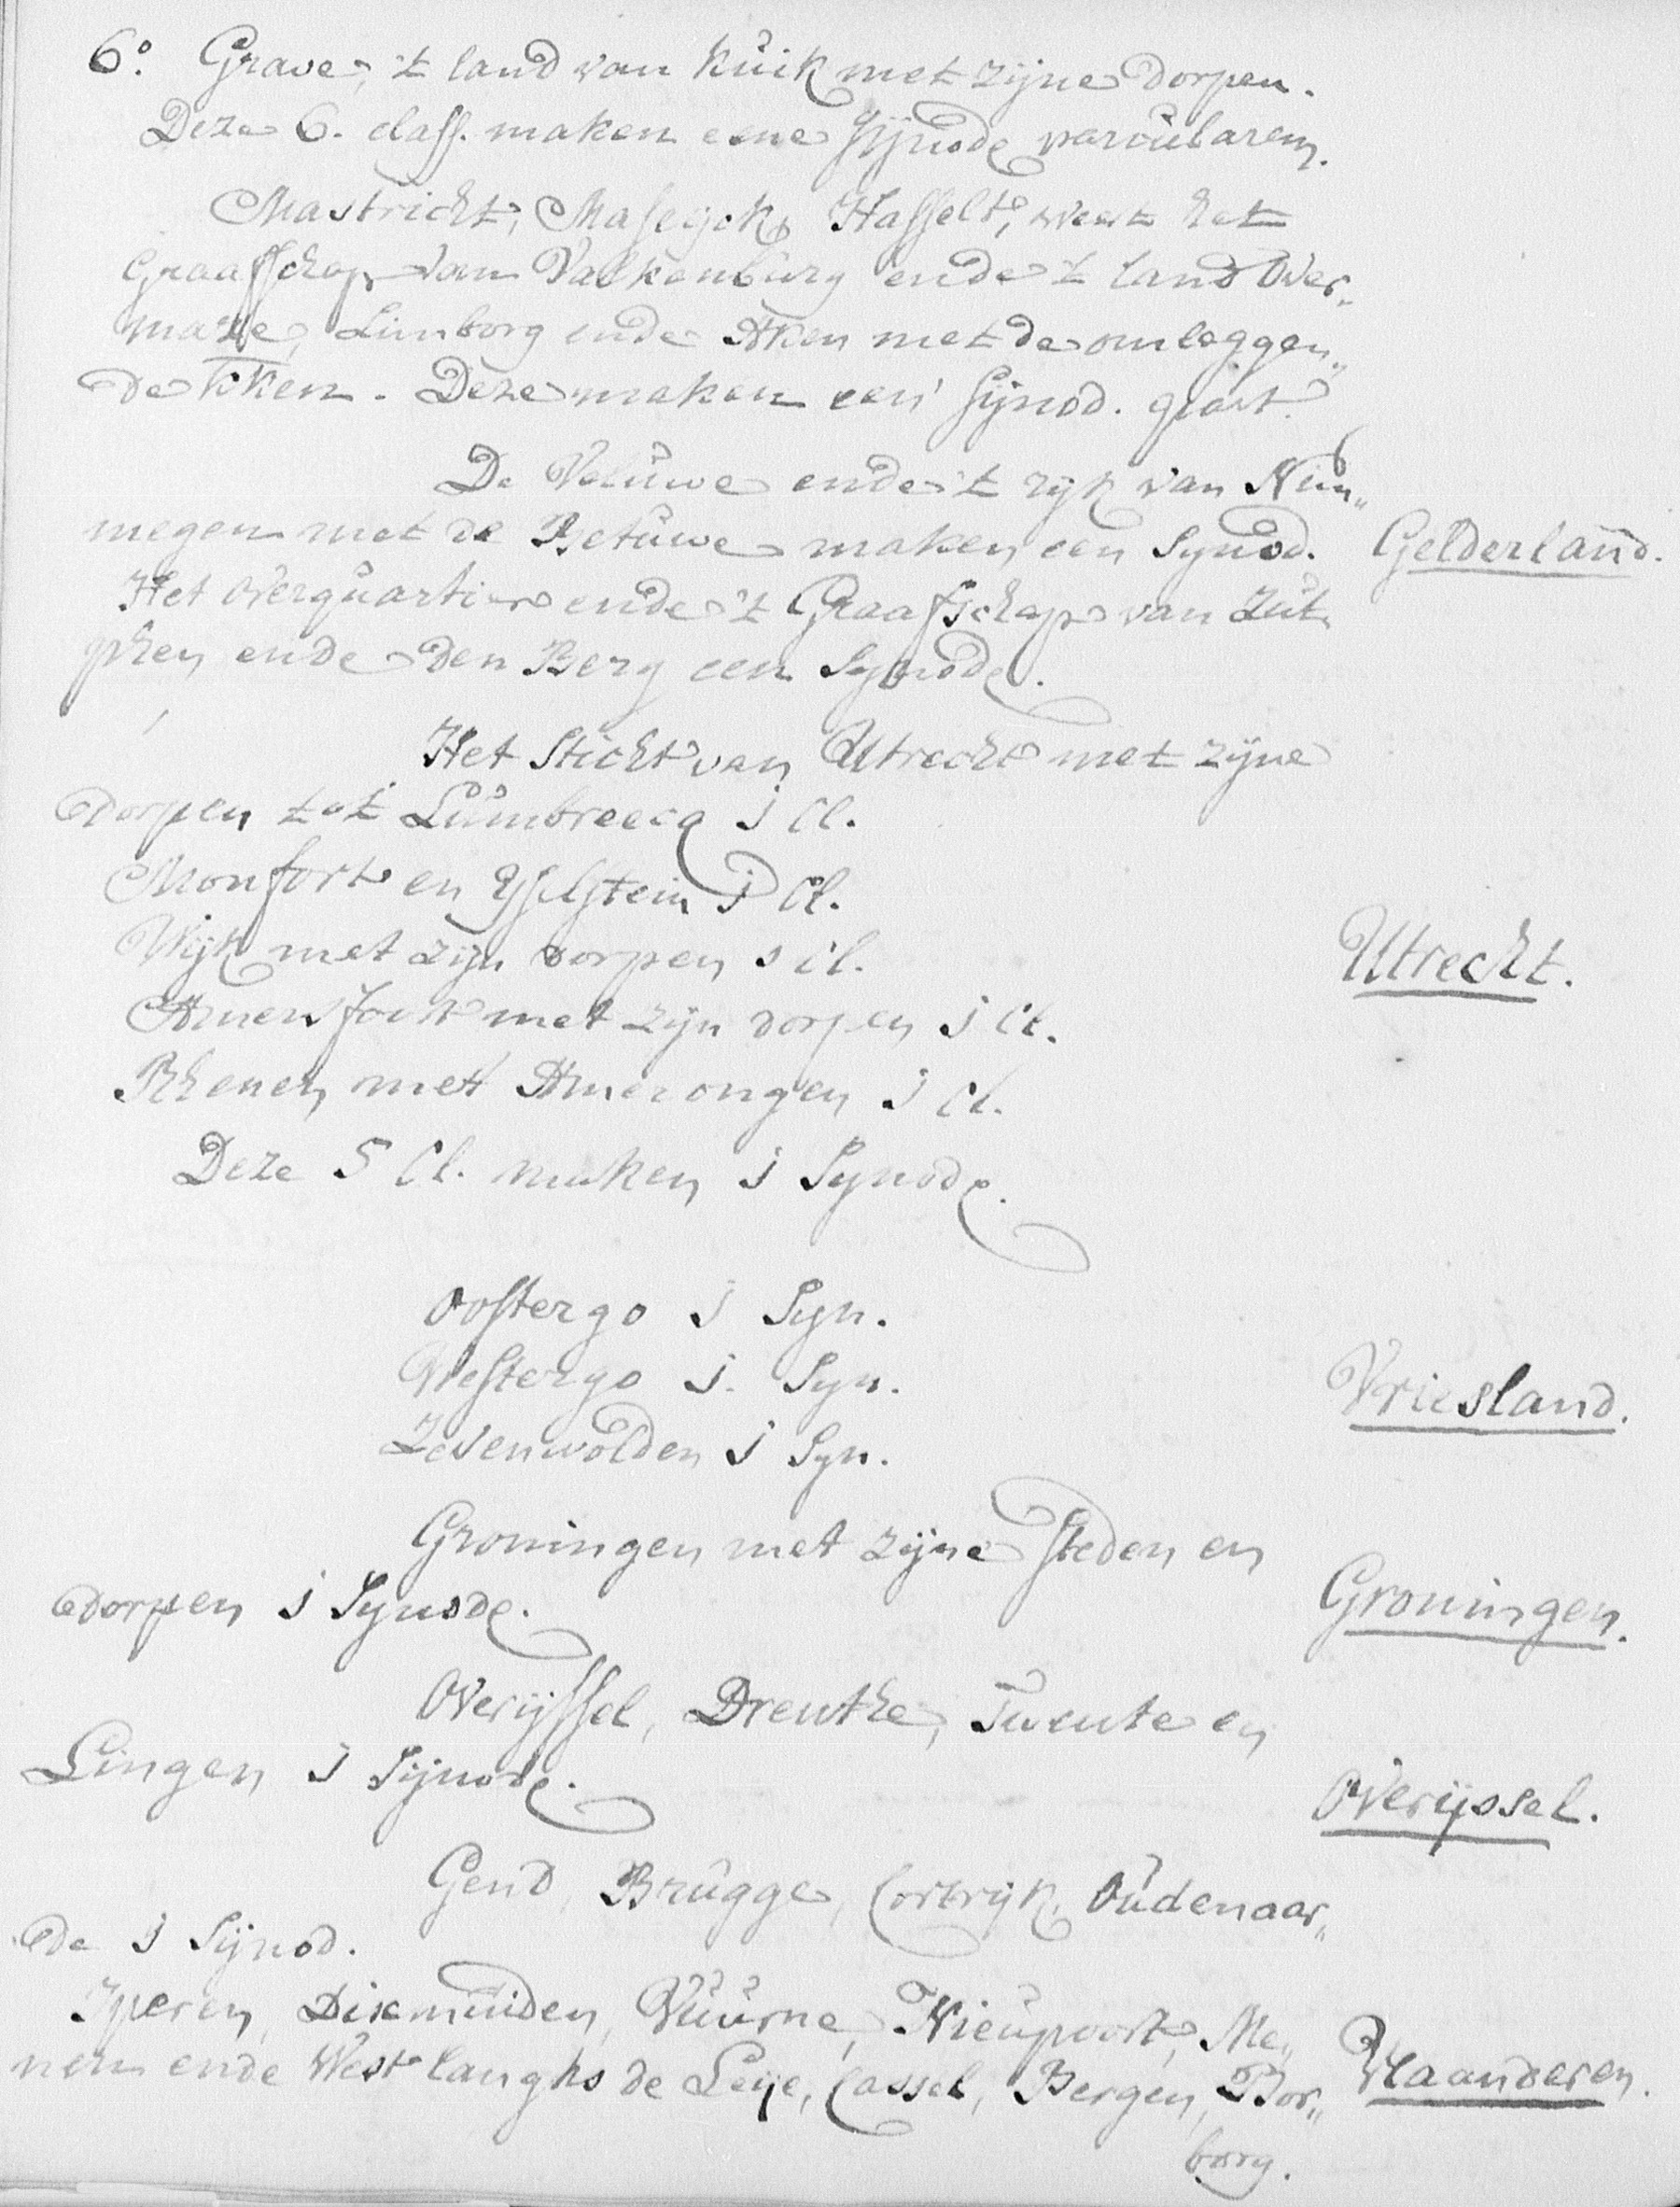 6º. Grave, 't land van Kuik met zijne dorpen.
Deze 6. class. maken eene Sijnode
Mastricht, Masejck, Hasselt, weert het
Graafschap van Valkenburg ende 't land Over-
maze, Limborg ende Aken met de omleggen„
de kken. Deze maken een Sijnod.
De Veluwe ende 't rijk van Nim„
megen met de Betuwe maken een Synod.
Gelderland.
Het overquartier ende 't Graafschap van Zut„
phen ende den Berg een Synode.
Het Sticht van Utrecht met zijne
dorpen tot Lumbreecq j Cl.
Monfort en Ysselstein j Cl.
Wijk met zijn dorpen j Cl.
Utrecht.
Amersfoort met zijn dorpen j Cl.
Rhenen met Amerongen j Cl.
Deze 5 Cl. maken j Synode.
Oostergo j Syn.
Westergo j. Syn.
Vriesland.
Zevenwolden j Syn.
Groningen met zijne steden en
dorpen j Synode.
Groningen.
Overijssel, Drenthe, Twente en
Lingen j Sijnode.
Overijssel.
Gend, Brugge, Cortrijk, Oudenaar„
de j Sijnod.
Iperen, Dixmuiden, Vuurne, Nieupoort, Me„
nen ende West langhs de Leije, Cassel, Bergen, Bor„
Vlaanderen.
borg.